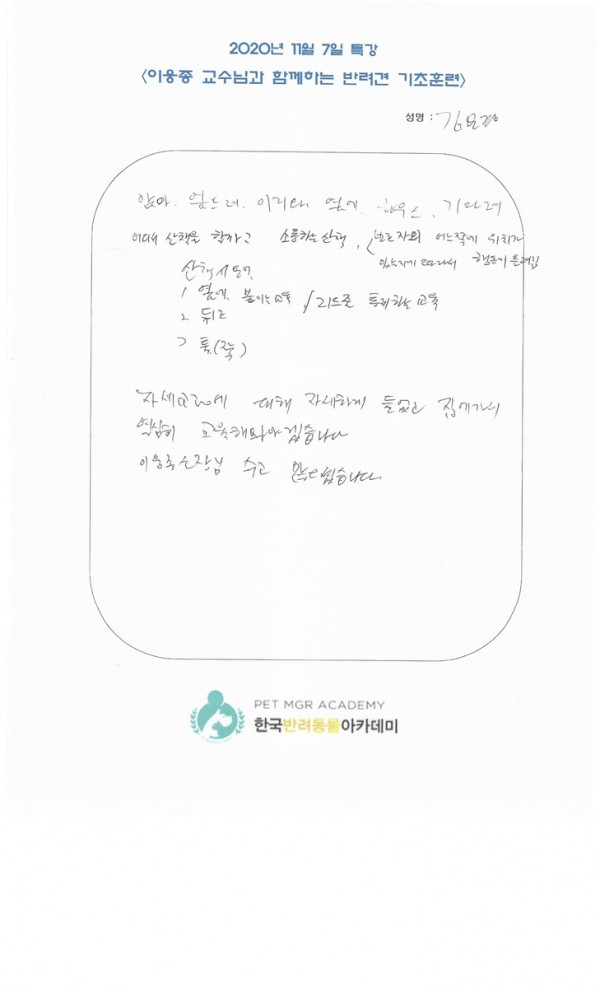 2020년 11월 7일 특강
<이웅종 교수님과 함께하는 반려견 기초훈련>
성명 : 김
앉아. 엎드려. 이리와. 옆에. 하우스. 기다려
산책을 할가고 소통하는 산책, 보호자와 어느쪽에 위치가
있는지에 따라서 행동이 틀려짐
산책시
1. 옆에 붙이는 교육 / 리드줄 통제하는 교육
2. 뒤로
3
자세교정에 대해 자세하게 들었고 집에가서
열심히 교육해봐야겠습니다
이웅종 수고 많으셨습니다.
PET MGR ACADEMY
한국반려동물아카데미